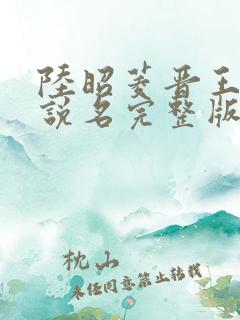 陸昭菱晋王
說名完整版
枕山
未经同意禁止转载